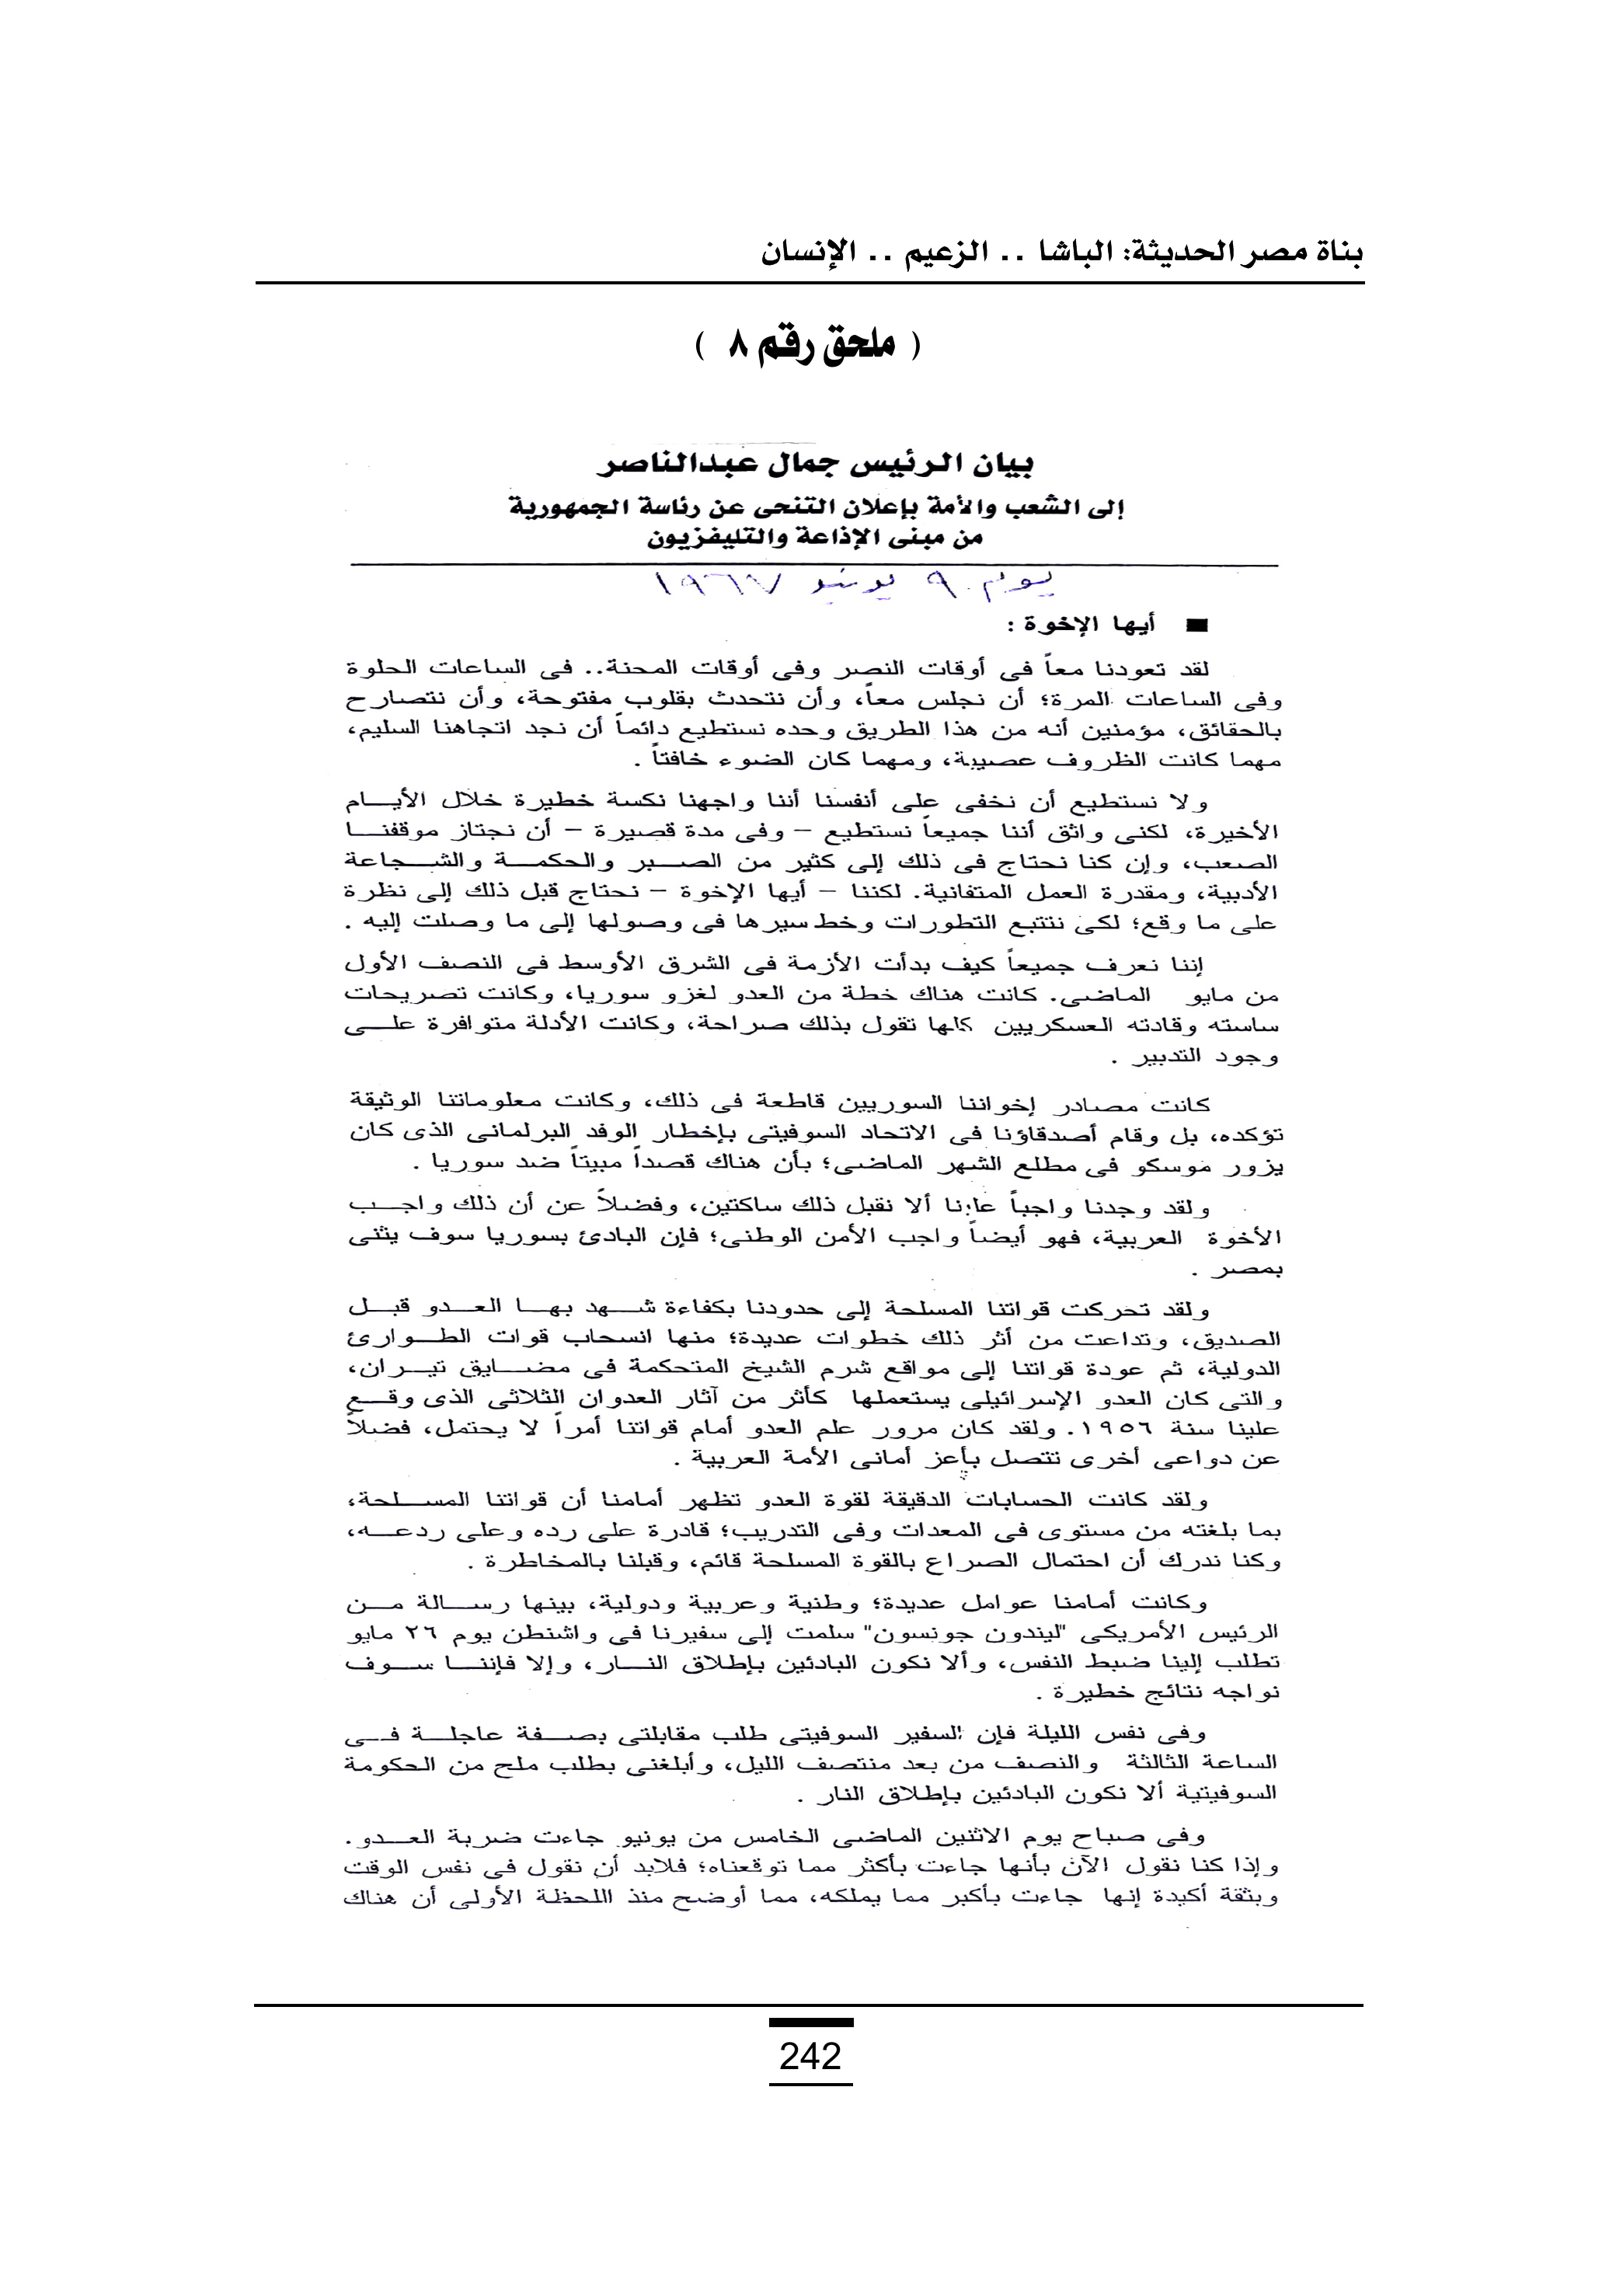 بناة مصر الحديثة: الباشا .. الزعيم .. الإنسان
( ملحق رقم ٨ )
بيان الرئيس جمال عبدالناصر
إلى الشعب والأمة بإعلان التنحى عن رئاسة الجمهورية
من مبنى الإذاعة والتليفزيون
يوم ٩ يونيو ١٩٦٧
■ أيها الإخوة :
لقد تعودنا معاً فى أوقات النصر وفى أوقات المحنة.. فى الساعات الحلوة
وفى الساعات المرة؛ أن نجلس معاً، وأن نتحدث بقلوب مفتوحة، وأن نتصارح
بالحقائق، مؤمنين أنه من هذا الطريق وحده نستطيع دائماً أن نجد اتجاهنا السليم،
مهما كانت الظروف عصيبة، ومهما كان الضوء خافتاً .
ولا نستطيع أن نخفى على أنفسنا أننا واجهنا نكسة خطيرة خلال الأيـــام
الأخيرة، لكنى واثق أننا جميعاً نستطيع – وفى مدة قصيرة – أن نجتاز موقفنـــا
الصعب، وإن كنا نحتاج فى ذلك إلى كثير من الصـــبر والحكمـــة والشـــجاعة
الأدبية، ومقدرة العمل المتفانية. لكننا – أيها الإخوة – نحتاج قبل ذلك إلى نظرة
على ما وقع؛ لكى نتتبع التطورات وخط سيرها فى وصولها إلى ما وصلت إليه .
إننا نعرف جميعاً كيف بدأت الأزمة فى الشرق الأوسط فى النصف الأول
من مايو الماضى. كانت هناك خطة من العدو لغزو سوريا، وكانت تصريحات
ساسته وقادته العسكريين كلها تقول بذلك صراحة، وكانت الأدلة متوافرة علـــى
وجود التدبير .
كانت مصادر إخواننا السوريين قاطعة فى ذلك، وكانت معلوماتنا الوثيقة
تؤكده، بل وقام أصدقاؤنا فى الاتحاد السوفيتى بإخطار الوفد البرلمانى الذى كان
يزور موسكو فى مطلع الشهر الماضى؛ بأن هناك قصداً مبيتاً ضد سوريا .
ولقد وجدنا واجباً علينا ألا نقبل ذلك ساكتين، وفضلاً عن أن ذلك واجـــب
الأخوة العربية، فهو أيضاً واجب الأمن الوطنى؛ فإن البادئ بسوريا سوف يثنى
بمصر .
ولقد تحركت قواتنا المسلحة إلى حدودنا بكفاءة شـــهد بهـــا العـــدو قبـــل
الصديق، وتداعت من أثر ذلك خطوات عديدة؛ منها انسحاب قوات الطـــوارئ
الدولية، ثم عودة قواتنا إلى مواقع شرم الشيخ المتحكمة فى مضـــايق تيـــران،
والتى كان العدو الإسرائيلى يستعملها كأثر من آثار العدوان الثلاثى الذى وقـــع
علينا سنة ١٩٥٦. ولقد كان مرور علم العدو أمام قواتنا أمراً لا يحتمل، فضلاً
عن دواعى أخرى تتصل بأعز أمانى الأمة العربية .
ولقد كانت الحسابات الدقيقة لقوة العدو تظهر أمامنا أن قواتنا المســـلحة،
بما بلغته من مستوى فى المعدات وفى التدريب؛ قادرة على رده وعلى ردعـــه،
وكنا ندرك أن احتمال الصراع بالقوة المسلحة قائم، وقبلنا بالمخاطرة .
وكانت أمامنا عوامل عديدة؛ وطنية وعربية ودولية، بينها رســـالة مـــن
الرئيس الأمريكى "ليندون جونسون" سلمت إلى سفيرنا فى واشنطن يوم ٢٦ مايو
تطلب إلينا ضبط النفس، وألا نكون البادئين بإطلاق النـــار، وإلا فإننـــا ســـوف
نواجه نتائج خطيرة .
وفى نفس الليلة فإن السفير السوفيتى طلب مقابلتى بصـــفة عاجلـــة فـــى
الساعة الثالثة والنصف من بعد منتصف الليل، وأبلغنى بطلب ملح من الحكومة
السوفيتية ألا نكون البادئين بإطلاق النار .
وفى صباح يوم الاثنين الماضى الخامس من يونيو جاءت ضربة العـــدو.
وإذا كنا نقول الآن بأنها جاءت بأكثر مما توقعناه؛ فلابد أن نقول فى نفس الوقت
وبثقة أكيدة إنها جاءت بأكبر مما يملكه، مما أوضح منذ اللحظة الأولى أن هناك
242